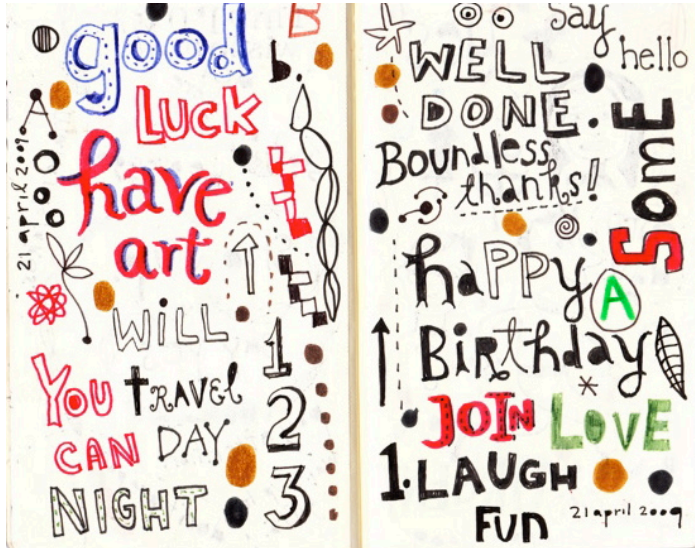 good
B
b.
LUCK
A
21 april 2009
have
art
WiLL
You travel
1
CAN DAY
2
NIGHT
3
Say
hello
WELL
DONE.
Some
Boundless
thanks!
haPPy
A
Birthday
JOIN LOVE
1. LAUGH
Fun
21 april 2009